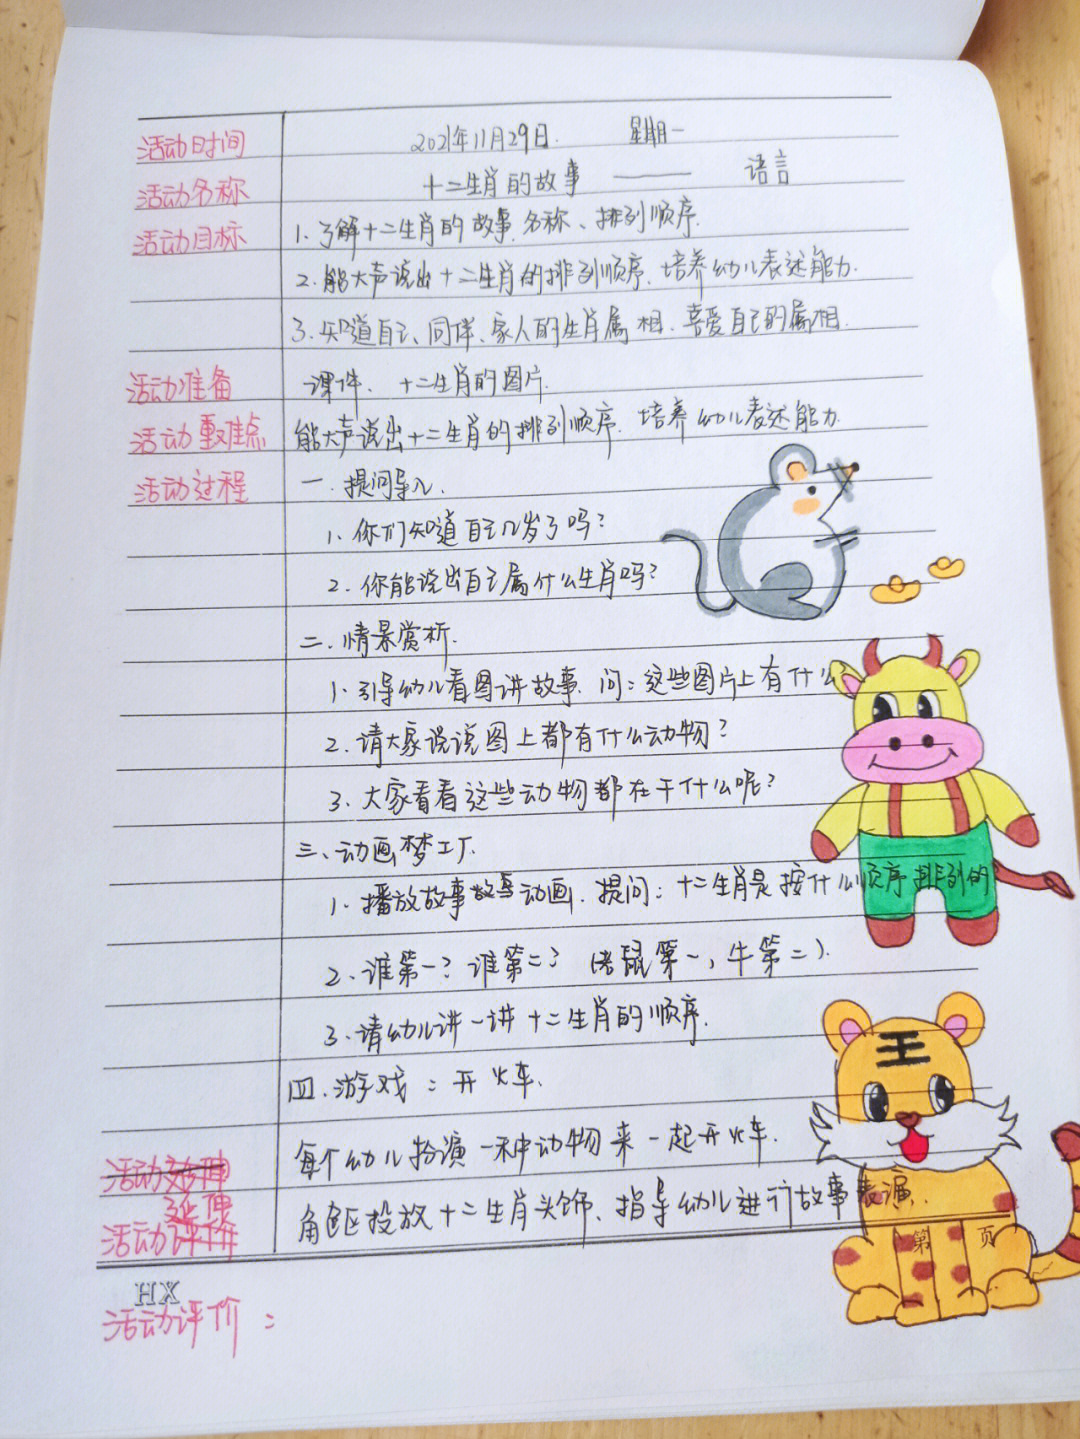 活动时间 2021年11月29日. 星期一
活动名称 十二生肖的故事 —— 语言
活动目标 1.了解十二生肖的故事、名称、排列顺序.
2.能大声说出十二生肖的排列顺序、培养幼儿表述能力.
3.知道自己、同伴、家人的生肖属相、喜爱自己的属相.
活动准备 课件、十二生肖的图片.
活动重难点 能大声说出十二生肖的排列顺序、培养幼儿表述能力.
活动过程 一.提问导入.
1.你们知道自己几岁了吗?
2.你能说出自己属什么生肖吗?
二.情景赏析.
1.引导幼儿看图讲故事.问:这些图片上有什么?
2.请大家说说图上都有什么动物?
3.大家看看这些动物都在干什么呢?
三.动画梦工厂.
1.播放故事故事动画.提问:十二生肖是按什么顺序排列的
2.谁第一?谁第二?(老鼠第一,牛第二).
3.请幼儿讲一讲十二生肖的顺序.
四.游戏:开火车.
活动 每个幼儿扮演一种动物来一起开火车.
延伸
活动评价 角色区投放十二生肖头饰、指导幼儿进行故事表演.
第 页
HX
活动评价: